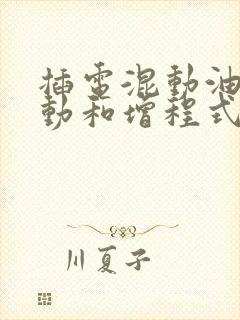 插電混動油
動和增程式
川夏子